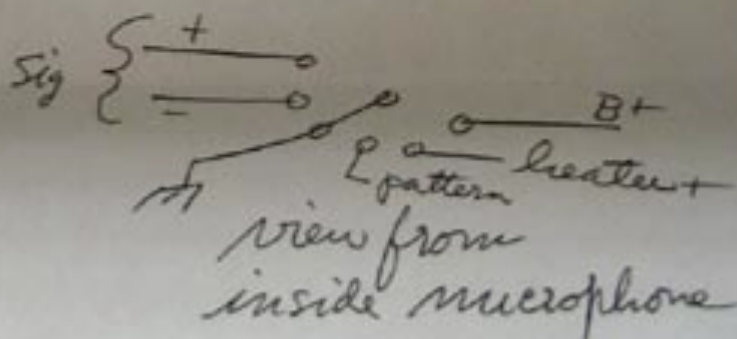 Sig { +
-
B+
pattern
heater+
view from
inside microphone